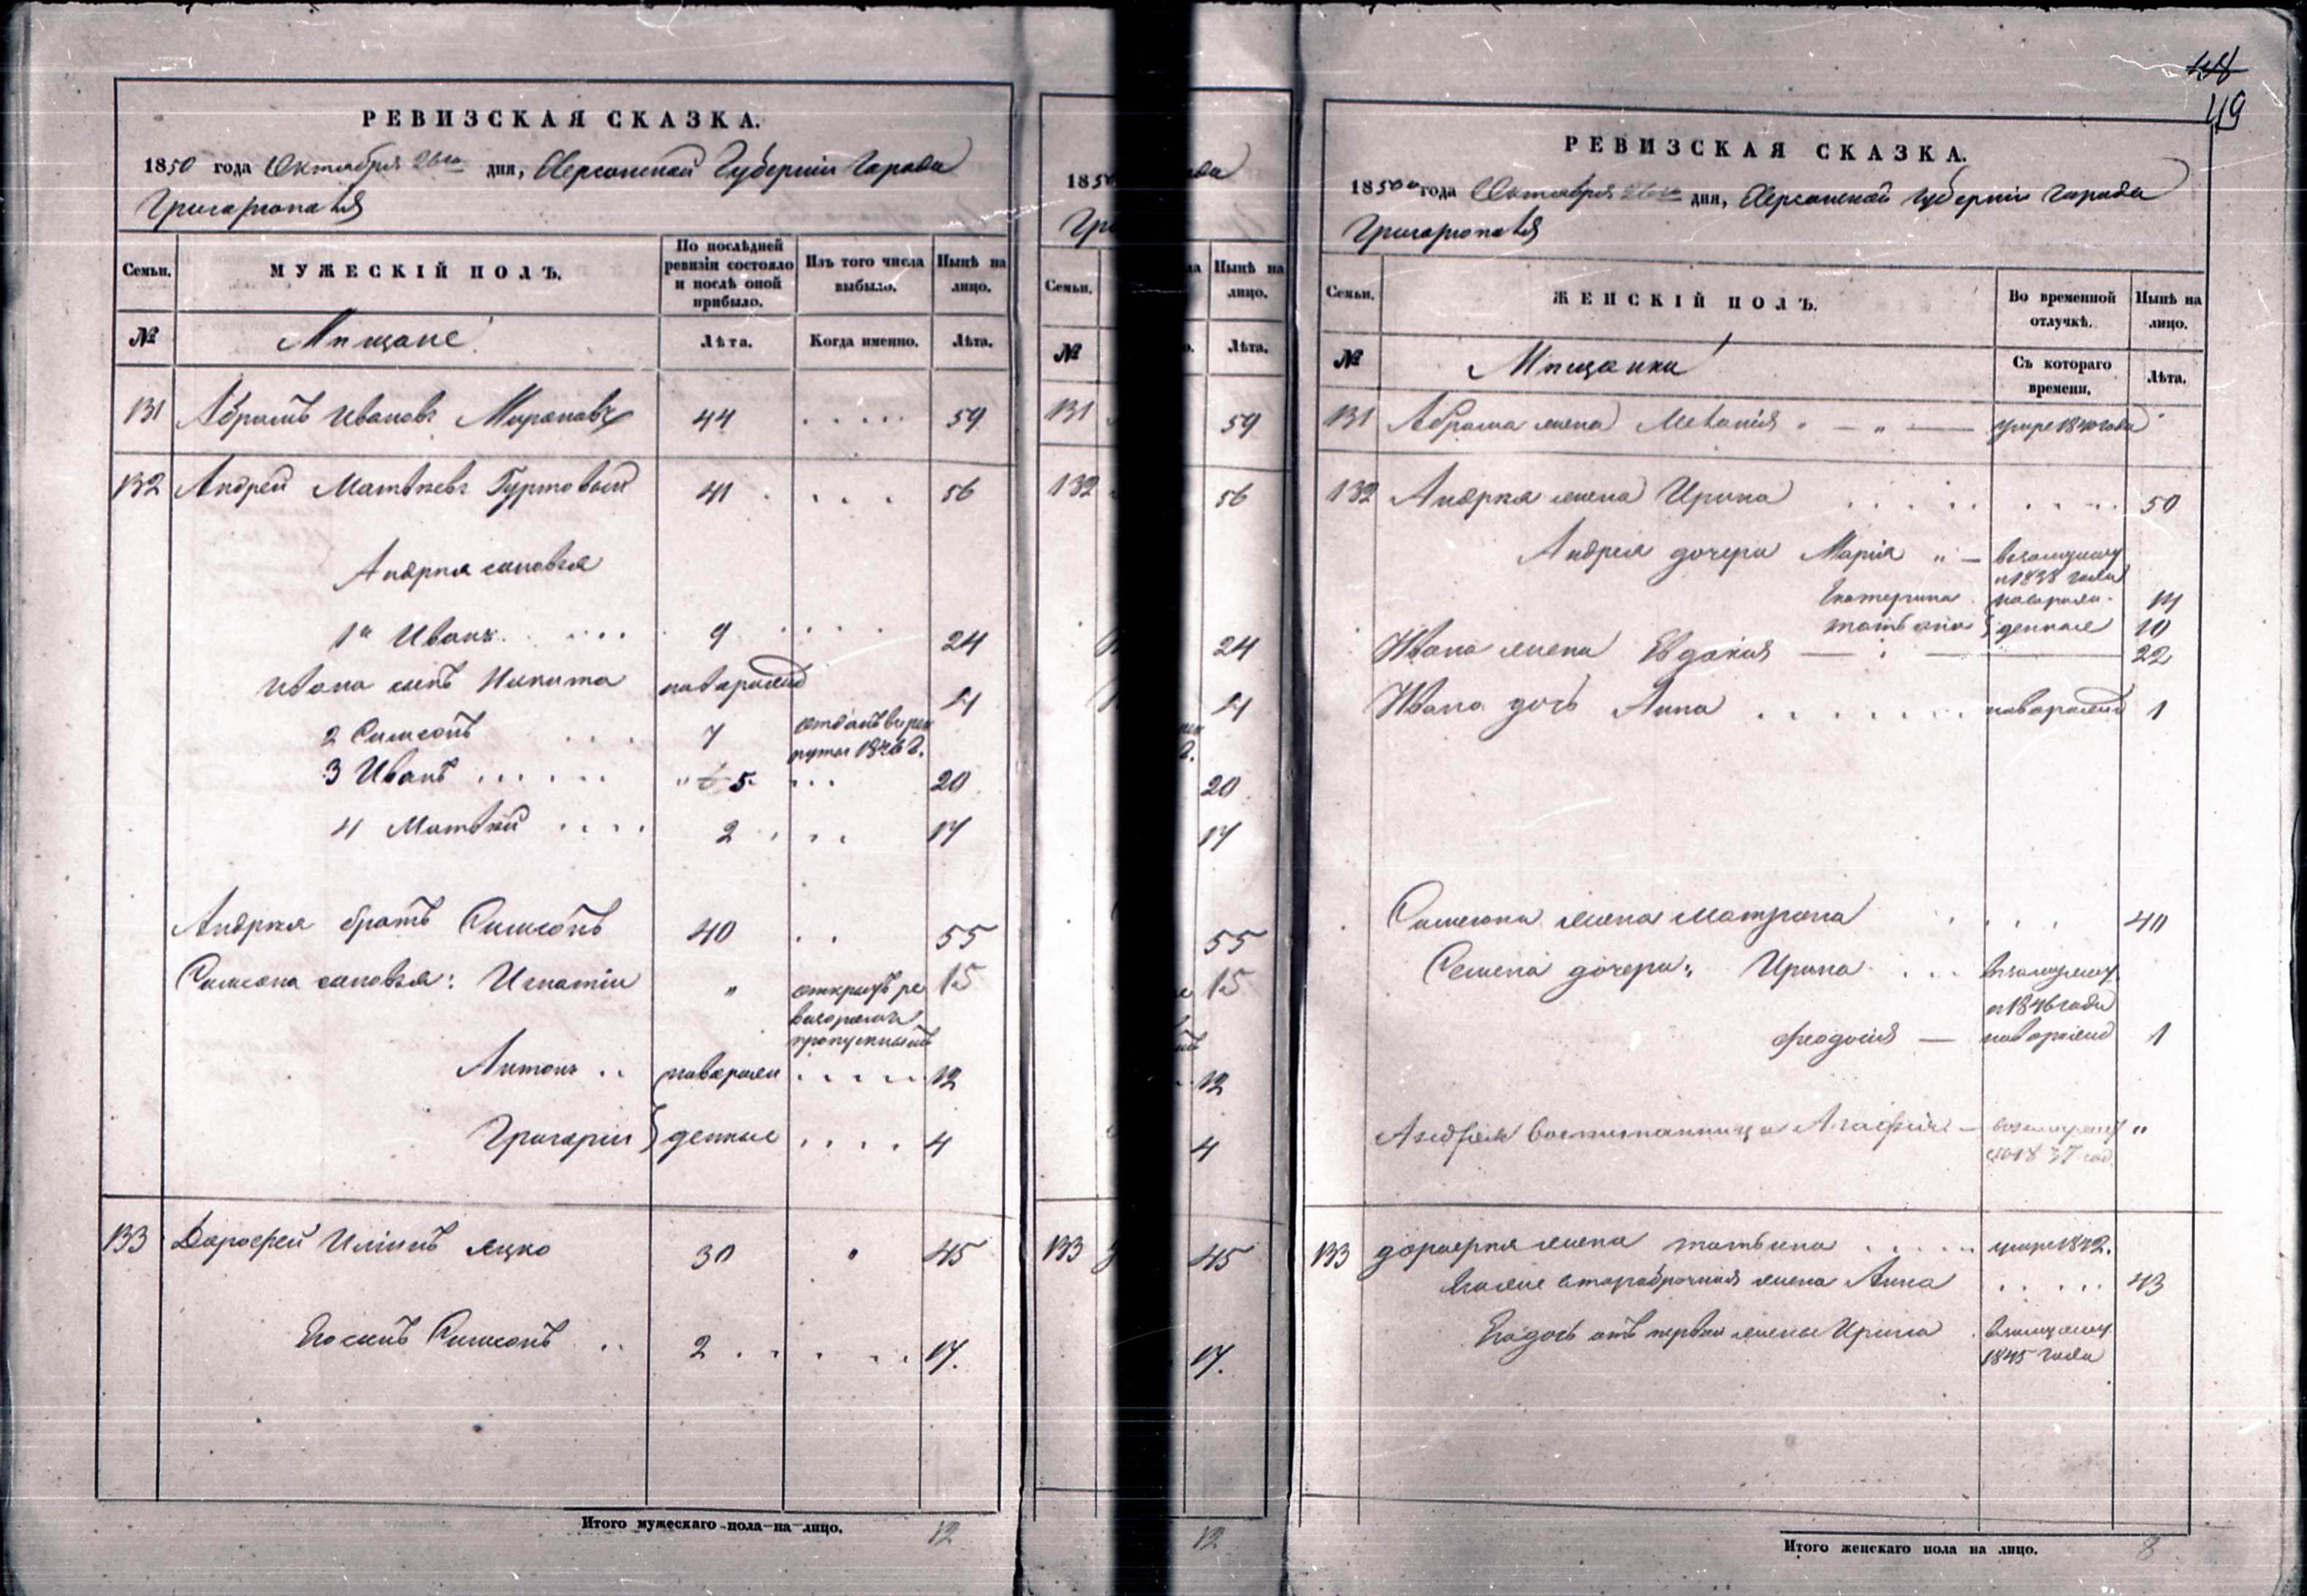 РЕВИЗСКАЯ СКАЗКА.
1850 года Октября 26го дня, Херсонской Губерніи Города
Григоріополя
Семьи. МУЖЕСКІЙ ПОЛЪ. По послѣдней ревизіи состояло и послѣ оной прибыло. Изъ того числа выбыло. Нынѣ на лицо.
№ Мѣщане Лѣта. Когда именно. Лѣта.
131 Абрамъ Ивановъ 44 59
132 Андрей Матвѣевъ Гуртовый 41 56
Андрея сыновья
1й Иванъ 9 24
Ивана сынъ Никита новорожд 4
2 Симеонъ 7 отданъ в рек
руты 1846 г.
3 Иванъ 5 20
4 Матвѣй 2 17
Андрея братъ Симеонъ 40 55
Симеона сыновья: Игнатій " 15
пропускныхъ
Антонъ новорож 12
Григорій } денные 4
133 Дорофей Ильинъ Яцко 30 " 45
Его сынъ Симеонъ 2 17.
Итого мужескаго пола на лицо. 12
1850 ода
Гри
Семьи. Нынѣ на лицо.
№ Лѣта.
131 59
132 56
24
4
20
17
55
15
12
4
133 45
17.
12
48
49
РЕВИЗСКАЯ СКАЗКА.
1850го года Октября 26го дня, Херсонской Губерніи Города
Григоріополя
Семьи. ЖЕНСКІЙ ПОЛЪ. Во временной отлучкѣ. Нынѣ на лицо.
№ Мѣщанки Съ котораго времени. Лѣта.
131 Абрама жена Меланія умре 1840 года
132 Андрея жена Ирина 50
Андрея дочери Марія " — взамужеству
1838 года
Екатерина новорож 14
Татьяна } денные 10
Ивана жена Евдокія 22
Ивана дочь Анна новорожд 1
Симеона жена Матрона 40
Семена дочери: Ирина взамужеству
1846 года
Феодосія — новорожд 1
Андрея воспитанница Агафія — взамужеству "
1837 год
133 дорофея жена татьяна умре 1842.
второбрачная жена Анна 43
Его дочь отъ первой жены Ирина взамужеству
1845 года
Итого женскаго пола на лицо. 8